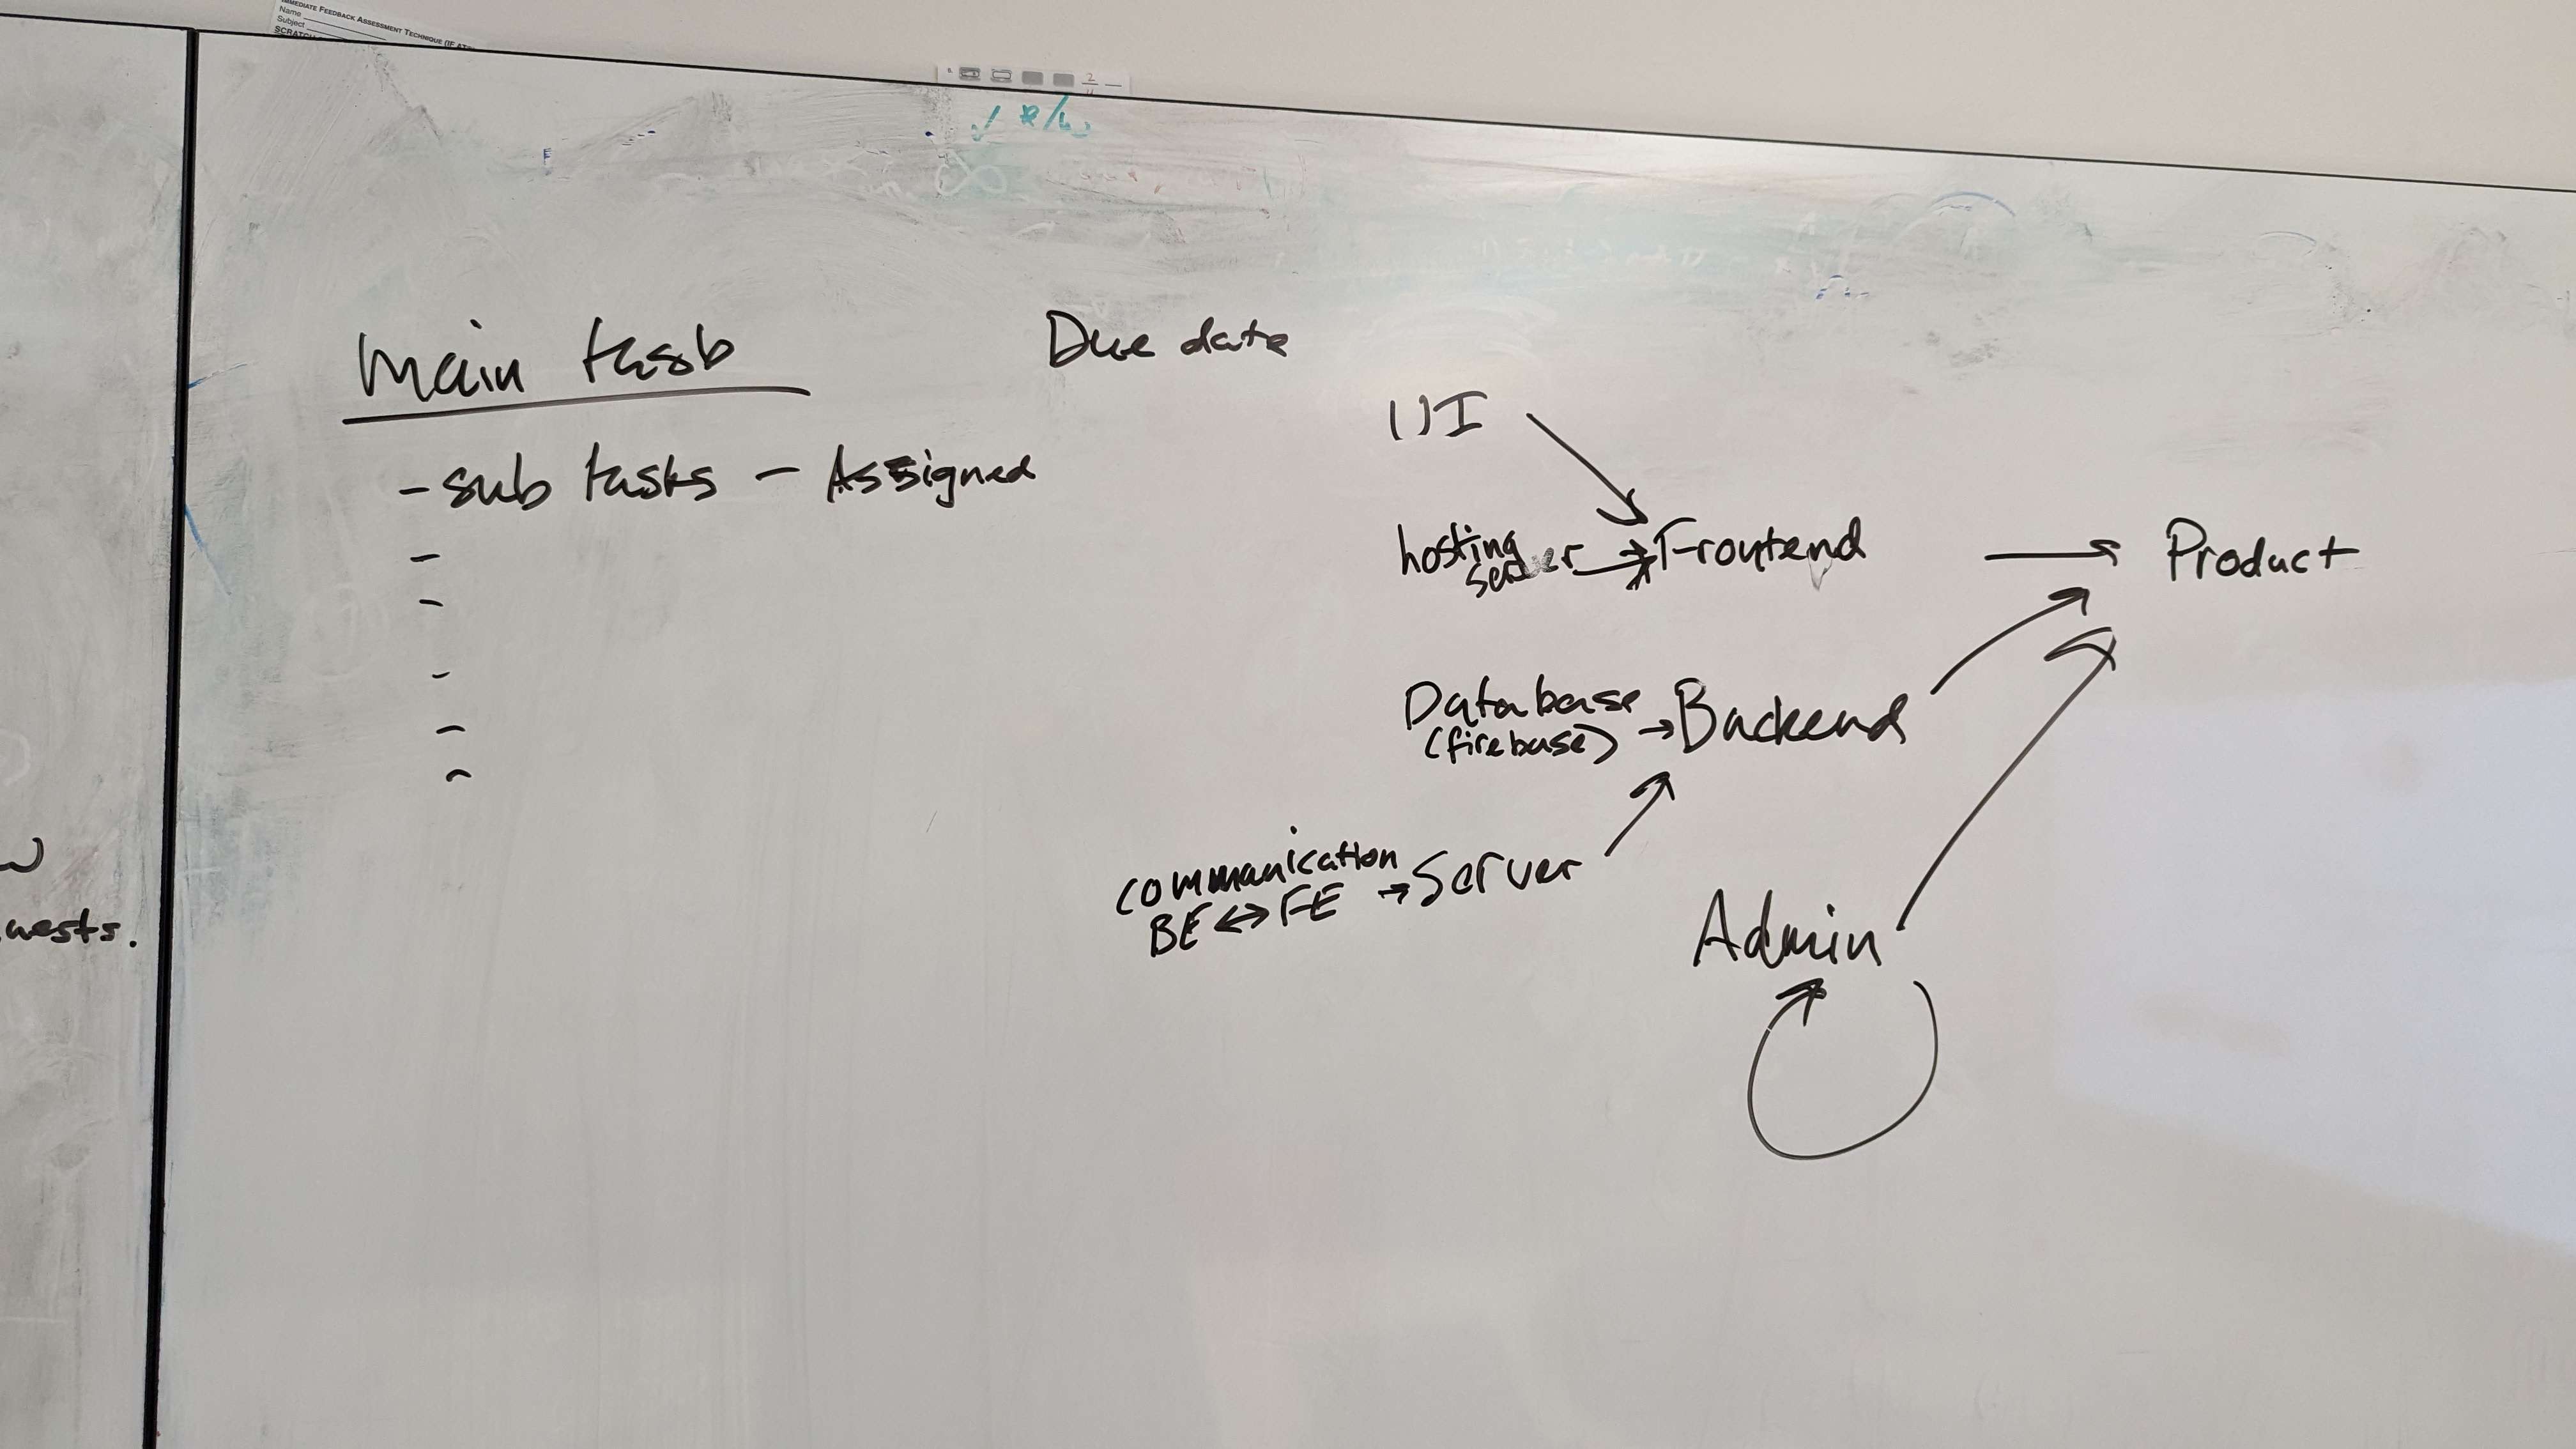 IMMEDIATE FEEDBACK ASSESSMENT TECHNIQUE (IF AT
Name
Subject
SCRATCH
Main task
Due date
- sub tasks - Assigned
-
-
-
-
-
UI
hosting server → Frontend → Product
Database (firebase) → Backend
communication BE ↔ FE → Server
Admin
uests.